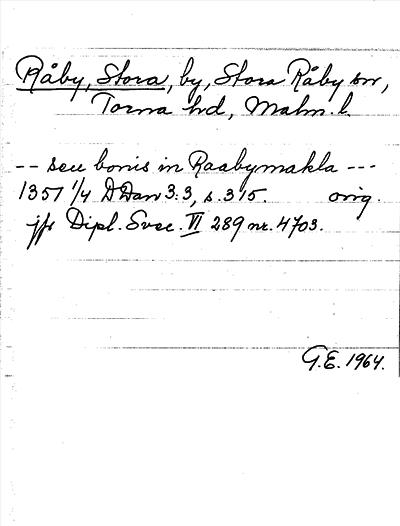 Råby, Stora, by, Stora Råby sn,
Torna hd, Malm. l.
-- seu bonis in Raabymakla ---
1357 1/4 DDan 3:3, s. 315. orig.
jfr Dipl. Svec. VI 289 nr. 4703.
G.E. 1964.